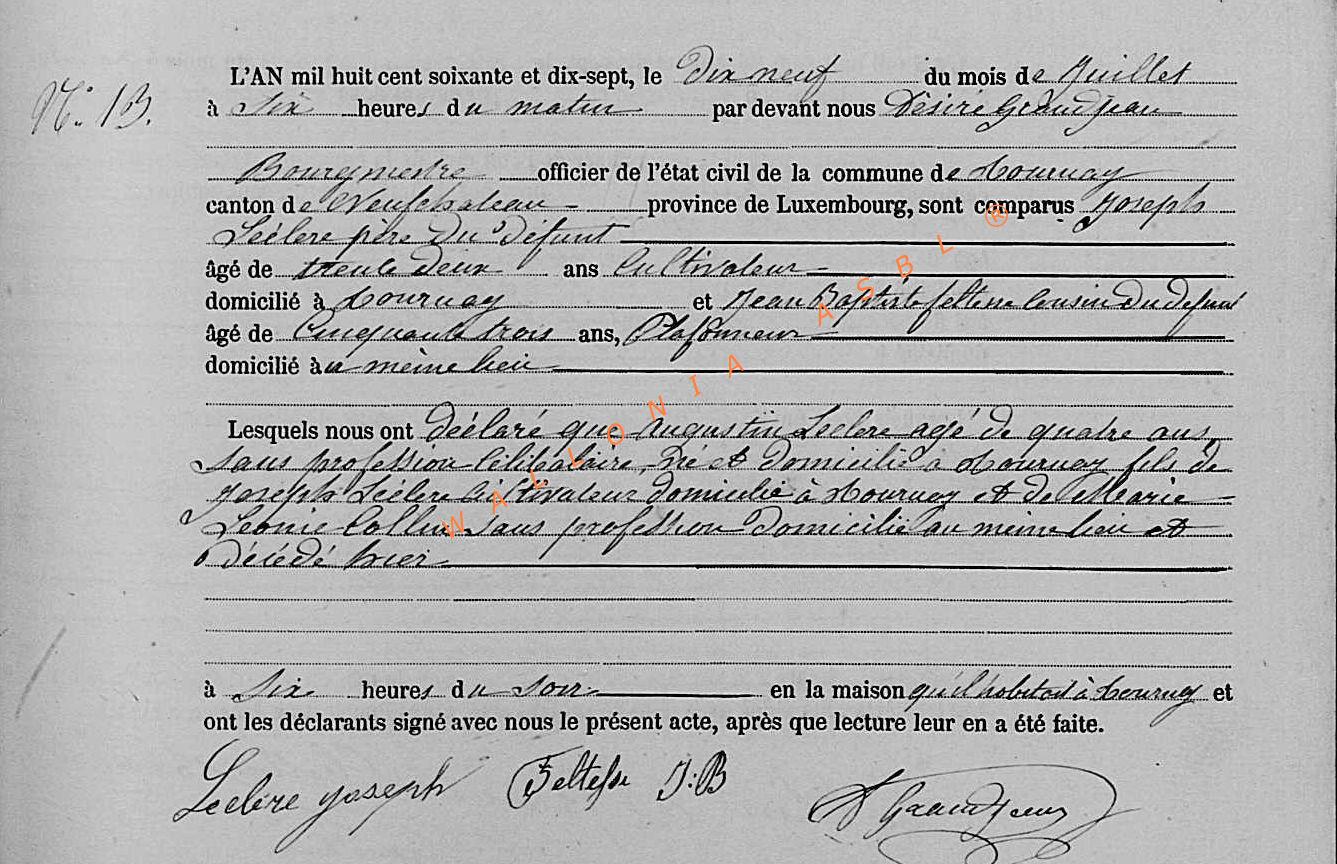 N.° 13.
L'AN mil huit cent soixante et dix-sept, le Dix neuf du mois de Juillet
à Six heures du matin par devant nous Désiré Grandjean
Bourgmestre officier de l'état civil de la commune de Tournay
canton de Neufchateau - province de Luxembourg, sont comparus Joseph
Leclere père du Défunt
âgé de trente deux ans Cultivateur
domicilié à Tournay et Jean Baptiste feltesse Cousin du defunt
âgé de Cinquante trois ans, Plafonneur
domicilié au même lieu
Lesquels nous ont déclaré que Augustin Leclere agé de quatre ans
sans profession Célibataire, né et domicilié à Tournay fils de
Joseph Leclere Cultivateur domicilié à Tournay et de Marie
Léonie Collin sans profession domicilié au même lieu et
décédé hier
à Six heures du soir en la maison qu'il habitait à Tournay et
ont les déclarants signé avec nous le présent acte, après que lecture leur en a été faite.
Leclère Joseph Feltesse J:B D Grandjean
WALLONIA ASBL ®